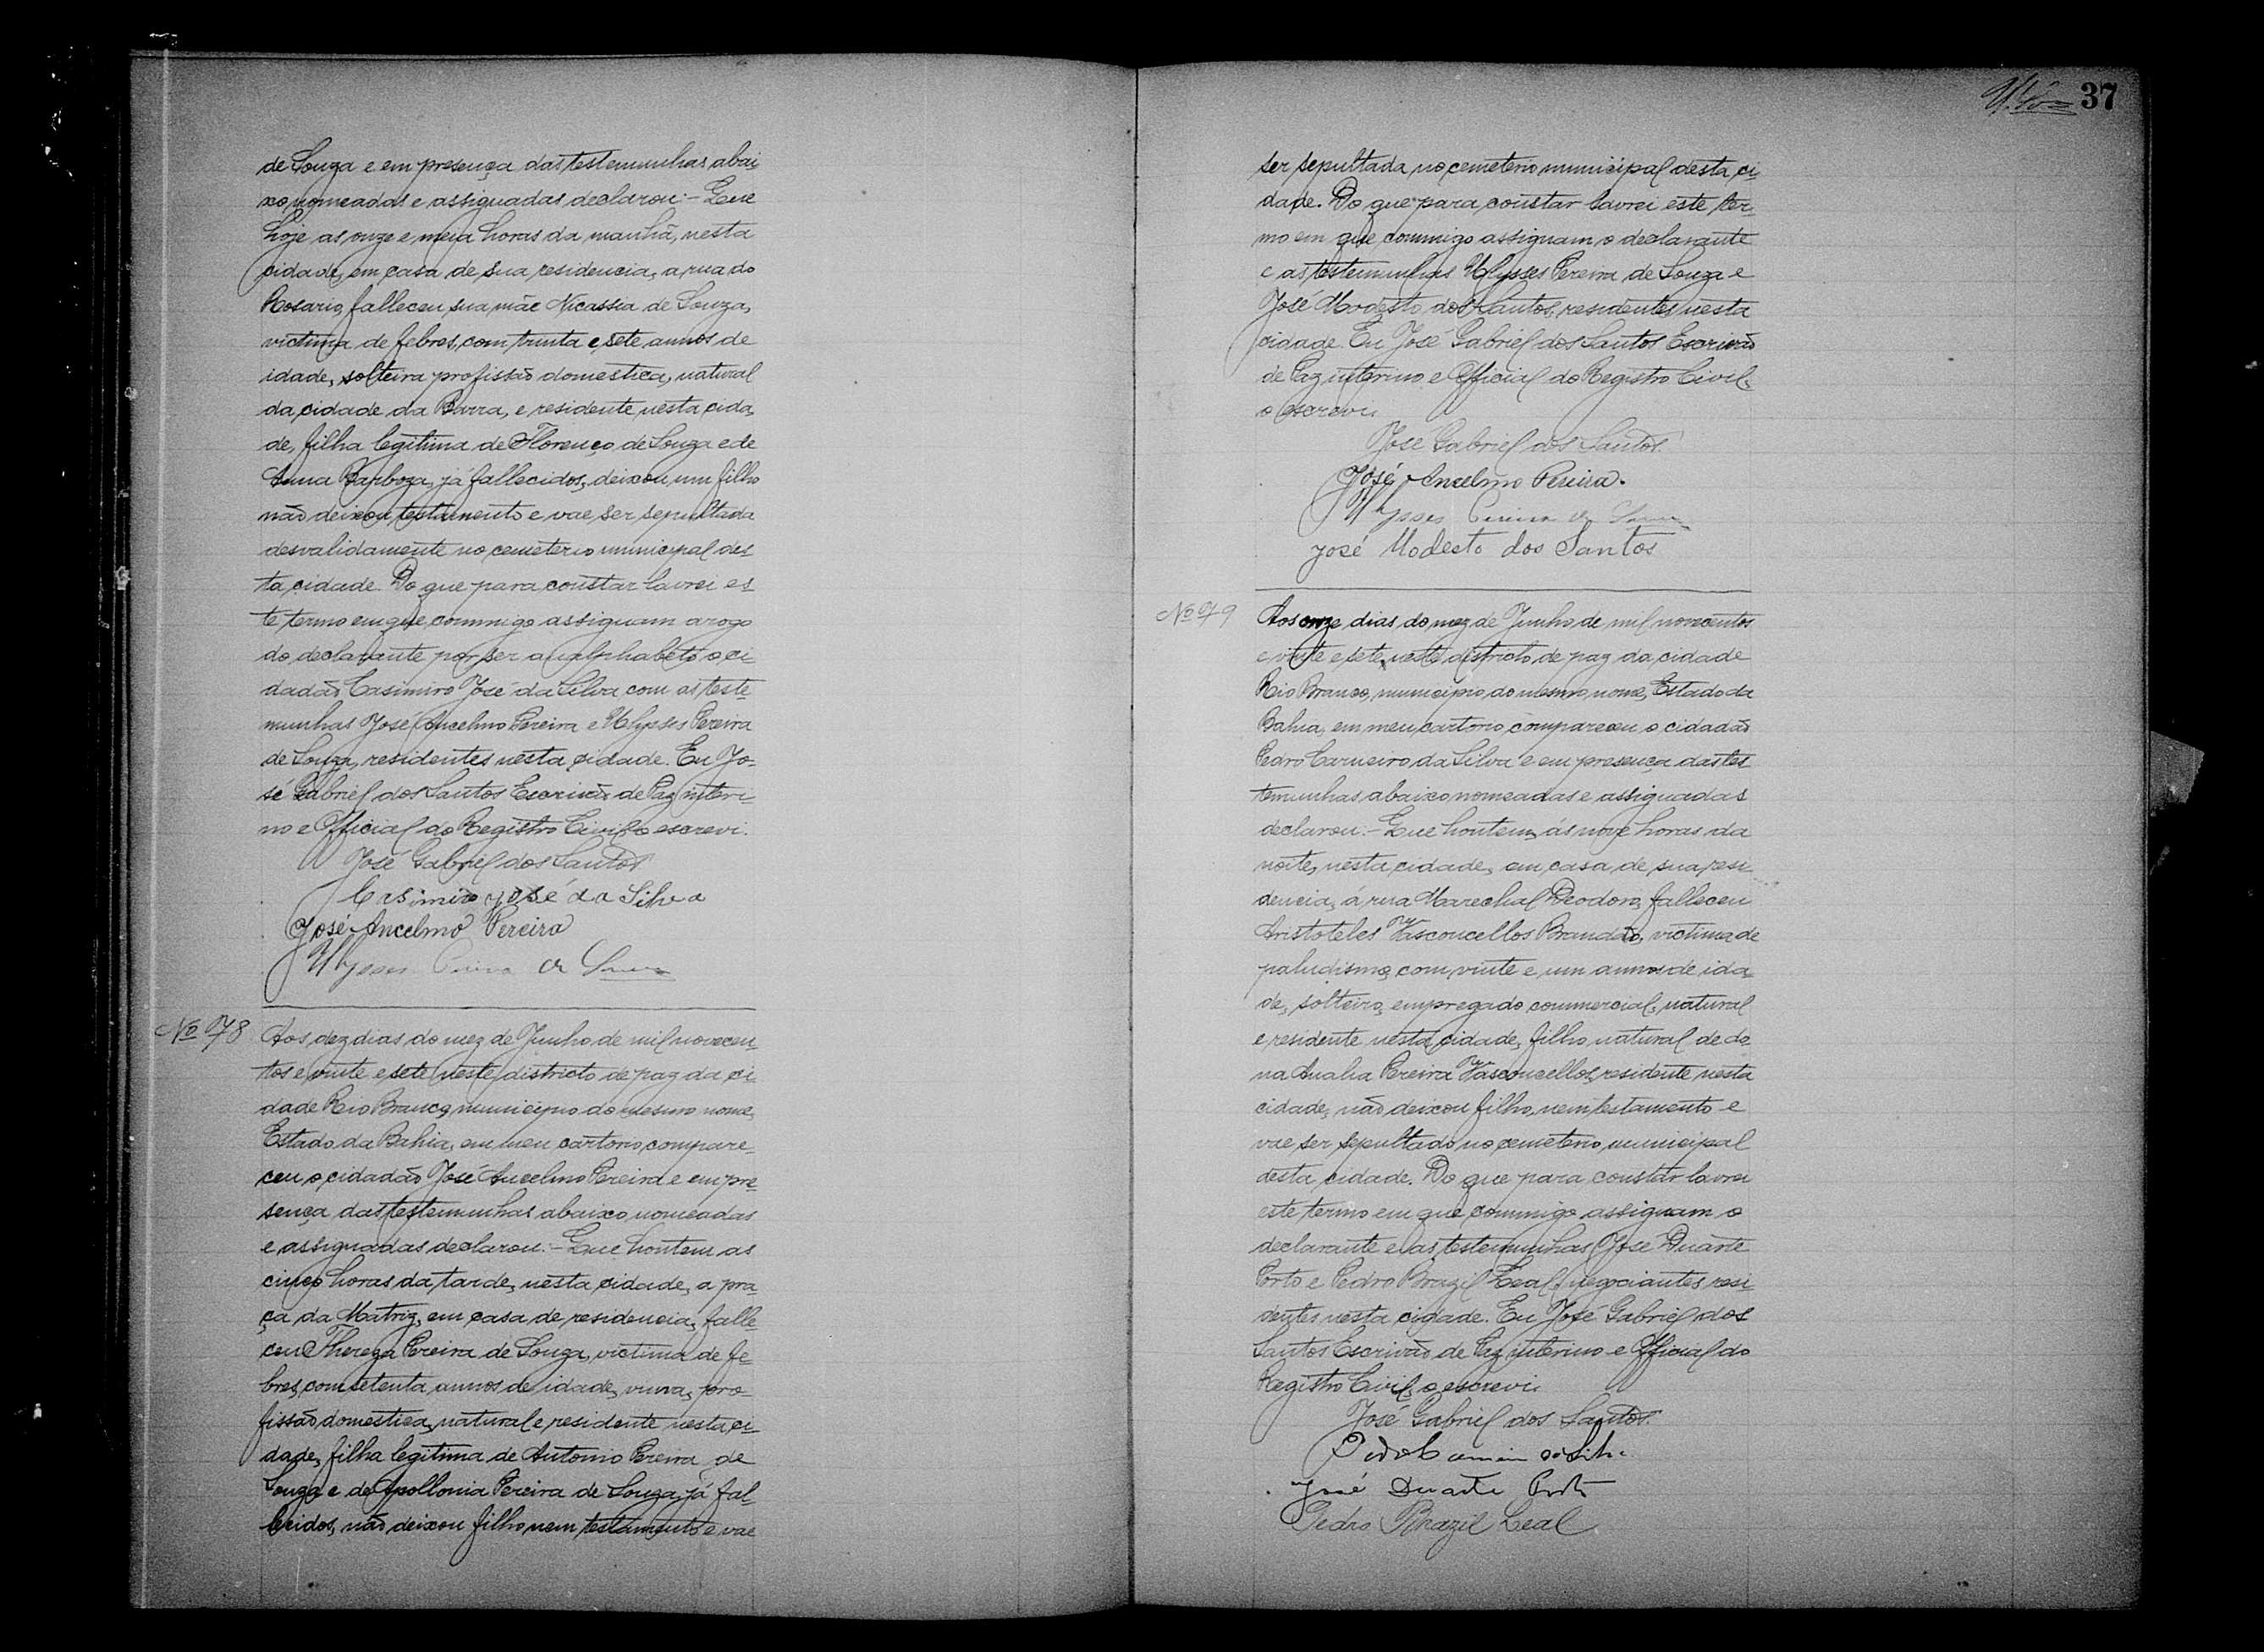 de Souza e em presença das testemunhas abai-
xo nomeadas e assignadas declarou:- Que
hoje as onze e meia horas da manhã, nesta
cidade, em casa de sua residencia, a rua do
Rosario, falleceu sua mãe Nicassia de Souza,
victima de febres, com trinta e sete annos de
idade, solteira profissão domestica, natural
da cidade da Barra, e residente nesta cida-
de, filha legitima de Florenço de Souza e de
Anna Barboza, já fallecidos, deixou um filho
não deixou testamento e vae ser sepultada
desvalidamente no cemeterio municipal des-
ta cidade. Do que para constar lavrei es-
te termo em que commigo assignam a rogo
do declarante por ser analphabeto o ci-
dadão Casimiro José da Silva com as teste-
munhas José Ancelmo Pereira e Ulysses Pereira
de Souza, residentes nesta cidade. Eu Jo-
sé Gabriel dos Santos Escrivão de Paz interi-
no e Official do Registro Civil o escrevi.
José Gabriel dos Santos
Casimiro José da Silva
José Ancelmo Pereira
Ulysses Pereira de Souza
Nº 78
Aos dez dias do mez de Junho de mil novecen-
tos e vinte e sete neste districto de paz da ci-
dade Rio Branco, municipio do mesmo nome,
Estado da Bahia, em meu cartorio compare-
ceu o cidadão José Ancelmo Pereira e em pre-
sença das testemunhas abaixo nomeadas
e assignadas declarou:- Que hontem as
cinco horas da tarde, nesta cidade, a pra-
ça da Matriz, em casa de residencia, falle-
ceu Thereza Pereira de Souza, victima de fe-
bres, com setenta annos de idade, viuva, pro-
fissão domestica, natural e residente nesta ci-
dade, filha legitima de Antonio Pereira de
Souza e de Apollonia Pereira de Souza, já fal-
lecidos, não deixou filho nem testamento e vae
37
ser sepultada no cemeterio municipal desta ci-
dade. Do que para constar lavrei este ter-
mo em que commigo assignam o declarante
e as testemunhas Ulysses Pereira de Souza e
José Modesto dos Santos, residentes nesta
cidade. Eu José Gabriel dos Santos Escrivão
de Paz interino e Official do Registro Civil,
o escrevi.
José Gabriel dos Santos
José Ancelmo Pereira.
Ulysses Pereira de Souza
José Modesto dos Santos
Nº 79
Aos onze dias do mez de Junho de mil novecentos
e vinte e sete, neste districto de paz da cidade
Rio Branco, municipio do mesmo nome, Estado da
Bahia, em meu cartorio compareceu o cidadão
Pedro Carneiro da Silva e em presença das tes
temunhas abaixo nomeadas e assignadas
declarou:- Que hontem, ás nove horas da
noite, nesta cidade, em casa de sua resi-
dencia, á rua Marechal Deodoro, falleceu
Aristoteles Vasconcellos Brandão, victima de
paludismo, com vinte e um annos de ida-
de, solteiro, empregado commercial, natural
e residente nesta cidade, filho natural de do
na Analia Pereira Vasconcellos, residente nesta
cidade, não deixou filho, nem testamento e
vae ser sepultado no cemeterio municipal
desta cidade. Do que para constar lavrei
este termo em que commigo assignam o
declarante e as testemunhas José Duarte
Porto e Pedro Brazil Leal, negociantes resi-
dentes nesta cidade. Eu José Gabriel dos
Santos Escrivão de Paz interino e Official do
Registro Civil, o escrevi.
José Gabriel dos Santos.
Pedro Carneiro da Silva
José Duarte Porto
Pedro Brazil Leal